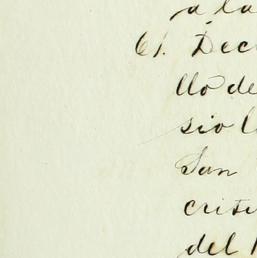 a la
61. Dec
llo de
sio l
San
crist
del